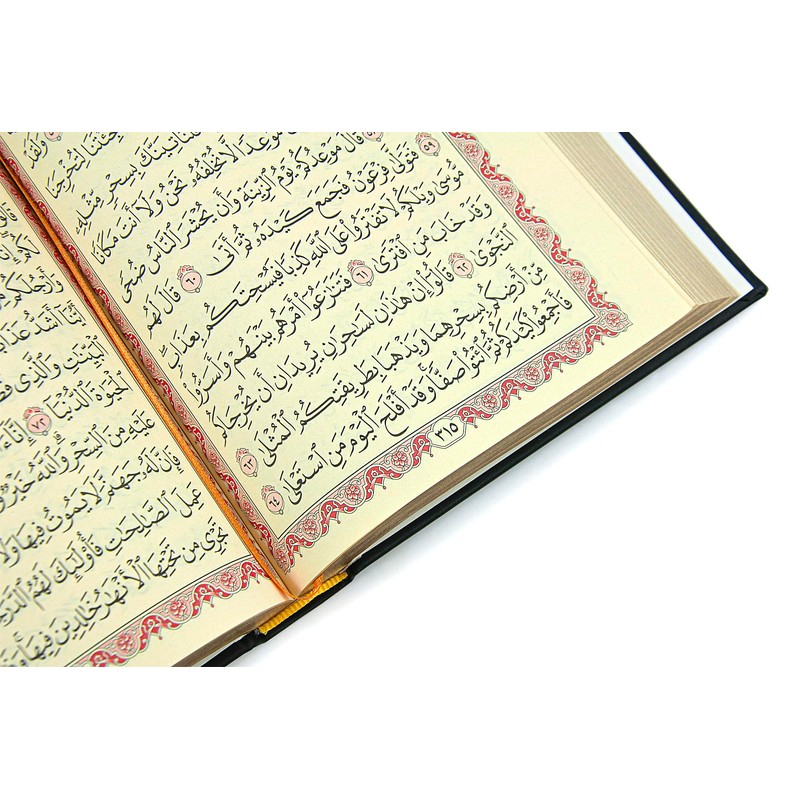 وَلَقَدْ
أَجِئْتَنَا لِتُخْرِجَنَا
بِسِحْرٍ مِّثْلِهِۦ
مَوْعِدًا لَّا نُخْلِفُهُۥ نَحْنُ وَلَآ أَنتَ مَكَانًا
قَالَ مَوْعِدُكُمْ يَوْمُ ٱلزِّينَةِ وَأَن يُحْشَرَ ٱلنَّاسُ ضُحًى
٥٩ فَتَوَلَّىٰ فِرْعَوْنُ فَجَمَعَ كَيْدَهُۥ ثُمَّ أَتَىٰ ٦٠ قَالَ لَهُم
مُّوسَىٰ وَيْلَكُمْ لَا تَفْتَرُوا۟ عَلَى ٱللَّهِ كَذِبًا فَيُسْحِتَكُم بِعَذَابٍ
وَقَدْ خَابَ مَنِ ٱفْتَرَىٰ ٦١ فَتَنَٰزَعُوٓا۟ أَمْرَهُم بَيْنَهُمْ وَأَسَرُّوا۟
ٱلنَّجْوَىٰ ٦٢ قَالُوٓا۟ إِنْ هَٰذَٰنِ لَسَٰحِرَٰنِ يُرِيدَانِ أَن يُخْرِجَاكُم
مِّنْ أَرْضِكُم بِسِحْرِهِمَا وَيَذْهَبَا بِطَرِيقَتِكُمُ ٱلْمُثْلَىٰ ٦٣
فَأَجْمِعُوا۟ كَيْدَكُمْ ثُمَّ ٱئْتُوا۟ صَفًّا وَقَدْ أَفْلَحَ ٱلْيَوْمَ مَنِ ٱسْتَعْلَىٰ ٦٤
٣١٥
وَأَرْجُلَكُم
أَيُّنَآ أَشَدُّ عَذَابًا
ٱلْبَيِّنَٰتِ وَٱلَّذِى
ٱلْحَيَوٰةَ ٱلدُّنْيَآ ٧٢ إِنَّآ
عَلَيْهِ مِنَ ٱلسِّحْرِ وَٱللَّهُ خَيْرٌ
فَإِنَّ لَهُۥ جَهَنَّمَ لَا يَمُوتُ فِيهَا وَلَا
عَمِلَ ٱلصَّٰلِحَٰتِ فَأُو۟لَٰٓئِكَ لَهُمُ
تَجْرِى مِن تَحْتِهَا ٱلْأَنْهَٰرُ خَٰلِدِينَ فِيهَا